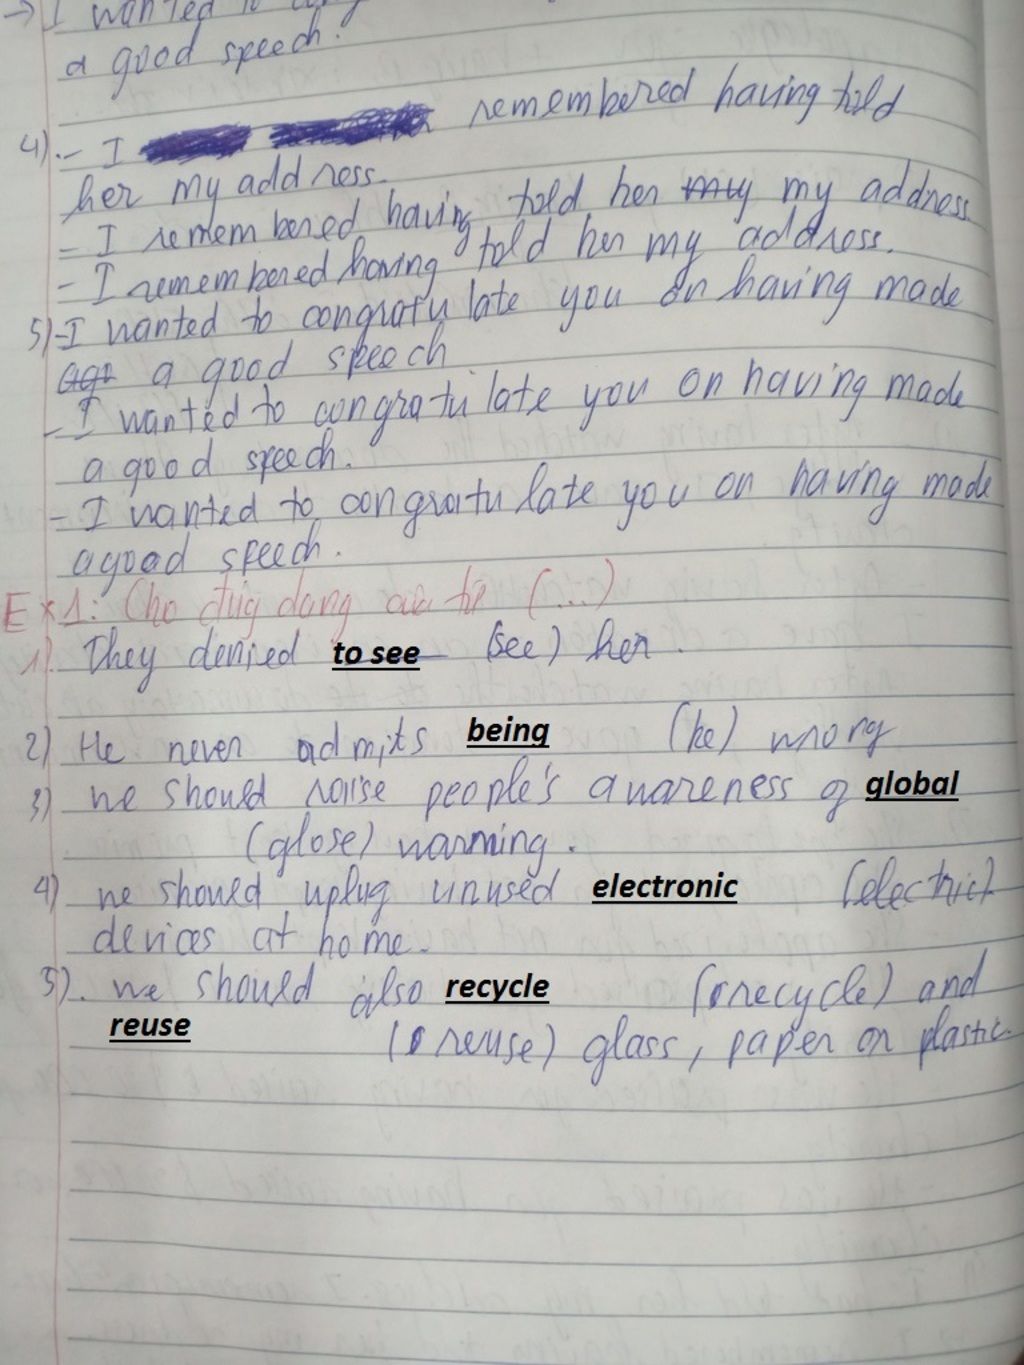 → I wanted to cong
a good speech.
4).- I remembered having told
her my address.
- I remembered having told her my my address
- I remembered having told her my address.
5)-I wanted to congratulate you on having made
a good speech
- I wanted to congratulate you on having made
a good speech.
- I wanted to congratulate you on having made
a good speech.
Ex1: Cho đúg dạng của từ (...)
1). They denied to see (see) her.
2) He never admits being (be) wrong
3) we should raise people's awareness of global
(glose) warming.
4) we should uplug unused electronic (electric)
devices at home.
5). we should also recycle (recycle) and
reuse (reuse) glass, paper or plastic